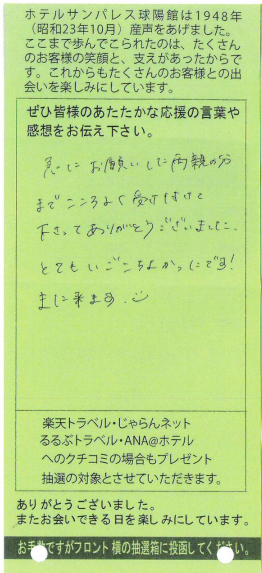 ホテルサンパレス球陽館は1948年
（昭和23年10月）産声をあげました。
ここまで歩んでこられたのは、たくさん
のお客様の笑顔と、支えがあったからで
す。これからもたくさんのお客様との出
会いを楽しみにしています。
ぜひ皆様のあたたかな応援の言葉や
感想をお伝え下さい。
急に お願いした両親の分
まで こころよく受け付けて
下さって ありがとうございました。
とても いごこちよかったです!
また来ます。
楽天トラベル・じゃらんネット
るるぶトラベル・ANA@ホテル
へのクチコミの場合もプレゼント
抽選の対象とさせていただきます。
ありがとうございました。
またお会いできる日を楽しみにしています。
お手数ですがフロント横の抽選箱に投函してください。